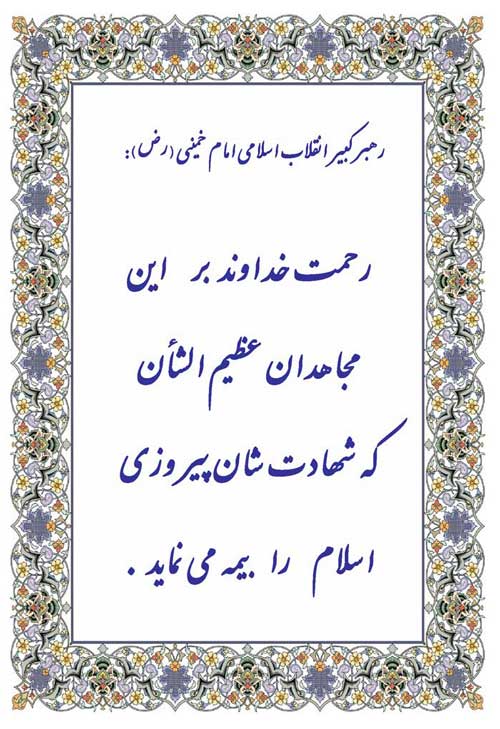 رهبر کبیر انقلاب اسلامی امام خمینی (رض):
رحمت خداوند بر این
مجاهدان عظیم الشأن
که شهادت شان پیروزی
اسلام را بیمه می نماید .